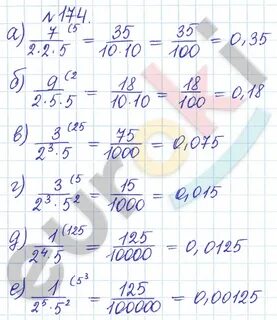 №174.
а) 7/(2·2·5) (5 = 35/(10·10) = 35/100 = 0,35
б) 9/(2·5·5) (2 = 18/(10·10) = 18/100 = 0,18
в) 3/(2³·5) (25 = 75/1000 = 0,075
г) 3/(2³·5²) (5 = 15/1000 = 0,015
д) 1/(2⁴·5) (125 = 125/10000 = 0,0125
е) 1/(2⁵·5²) (5³ = 125/100000 = 0,00125
euroki